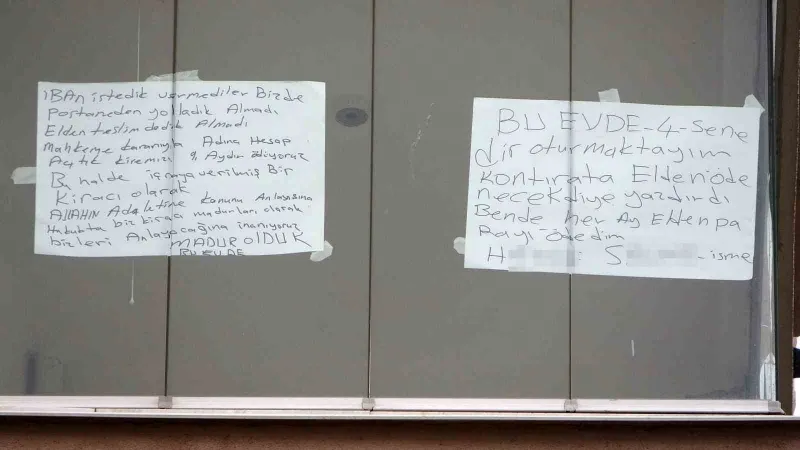 İBAN istedik vermediler Bizde
Postaneden yolladık Almadı
Elden teslim dedik Almadı
Mahkeme kararıyla Adına Hesap
Açtık kiremizi 9 Aydır ödiyoruz
Bu halde içraya verilmiş Bir
Kiracı olarak
ALLAHIN Adaletine konunu Anlayışına
Hukukta biz kiracı madurları olarak
bizleri Anlayacağına inanıyoruz
MADUR OLDUK
BU EVDE
BU EVDE-4-sene
dir oturmaktayım
kontırata Elden öde
necek diye yazdırdı
Bende her Ay Elten pa
Rayı ödedim
H S -isme